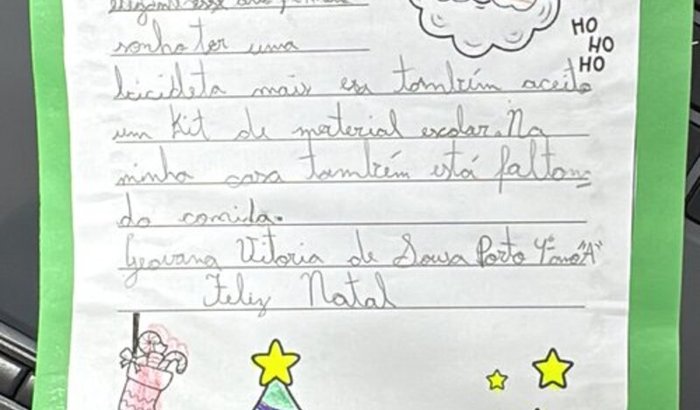 esse ano
HO
HO
HO
sonho ter uma
bicicleta mais eu também aceito
um Kit de material escolar. Na
minha casa também está faltan=
do comida.
Geovana Vitoria de Sousa Porto 4º ano "A"
Feliz Natal